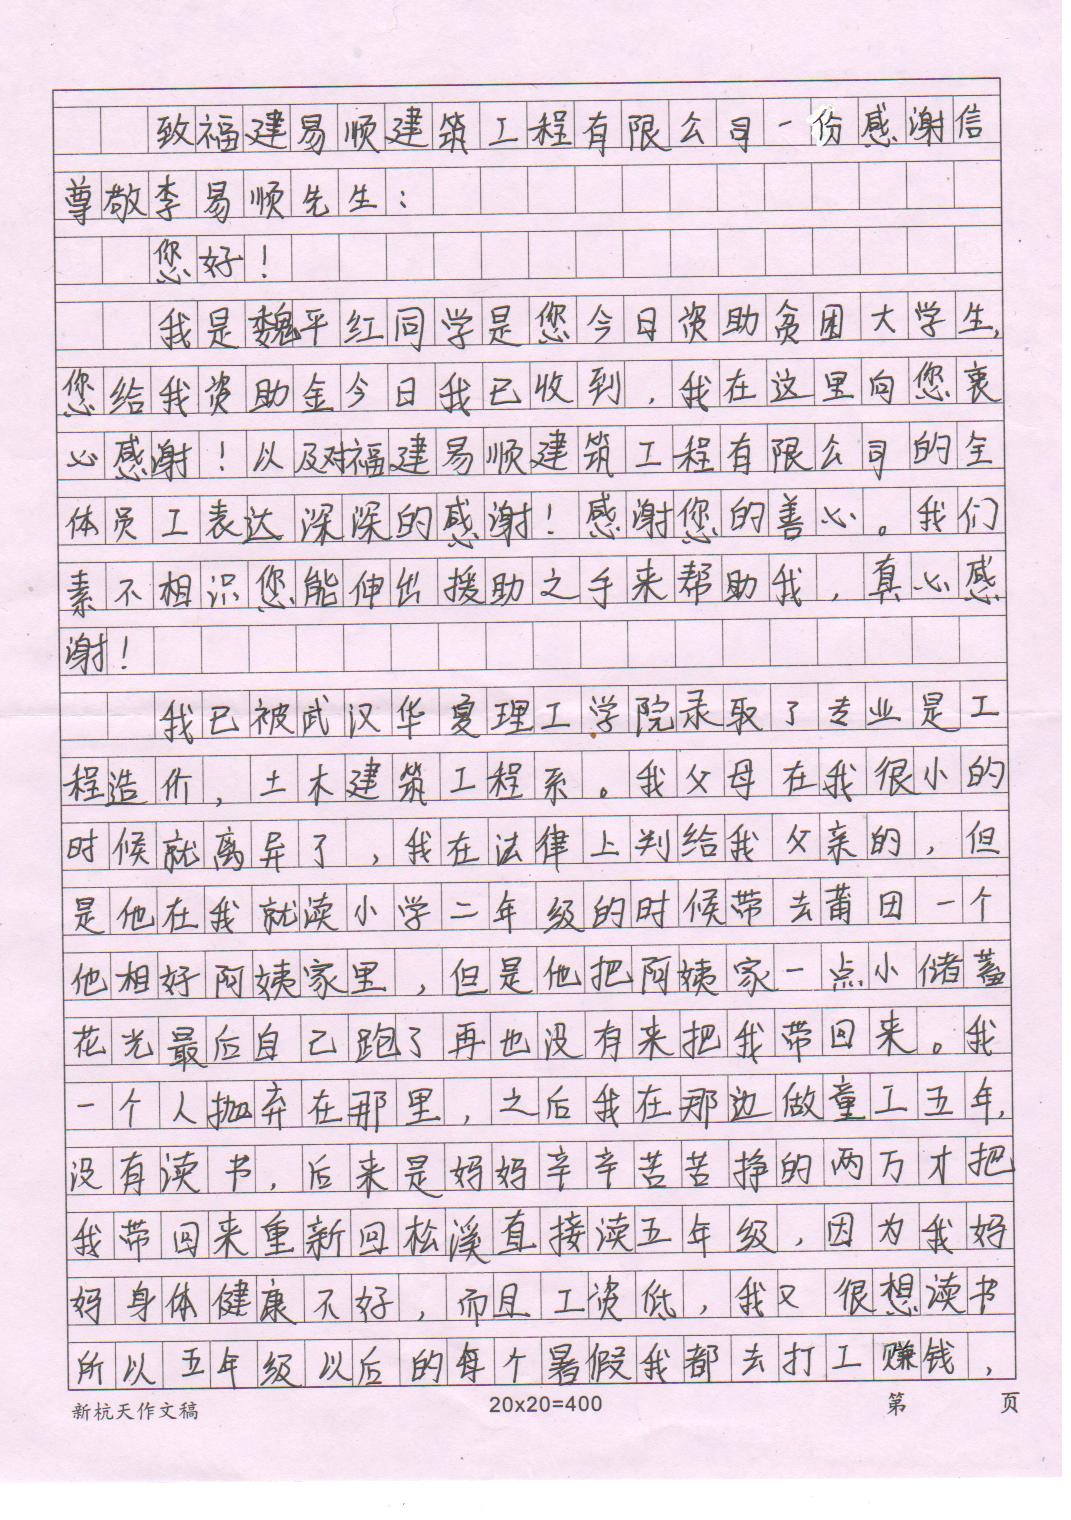 致福建易顺建筑工程有限公司一份感谢信
尊敬李易顺先生:
您好!
我是魏平红同学是您今日资助贫困大学生,
您给我资助金今日我已收到,我在这里向您衷
心感谢!以及对福建易顺建筑工程有限公司的全
体员工表达深深的感谢!感谢您的善心。我们
素不相识您能伸出援助之手来帮助我,真心感
谢!
我已被武汉华夏理工学院录取了专业是工
程造价,土木建筑工程系。我父母在我很小的
时候就离异了,我在法律上判给我父亲的,但
是他在我就读小学二年级的时候带去莆田一个
他相好阿姨家里,但是他把阿姨家一点小储蓄
花光最后自己跑了再也没有来把我带回来。我
一个人抛弃在那里,之后我在那边做童工五年,
没有读书,后来是妈妈辛辛苦苦挣的两万才把
我带回来重新回松溪直接读五年级,因为我妈
妈身体健康不好,而且工资低,我又很想读书
所以五年级以后的每个暑假我都去打工赚钱,
新杭天作文稿 20x20=400 第 页